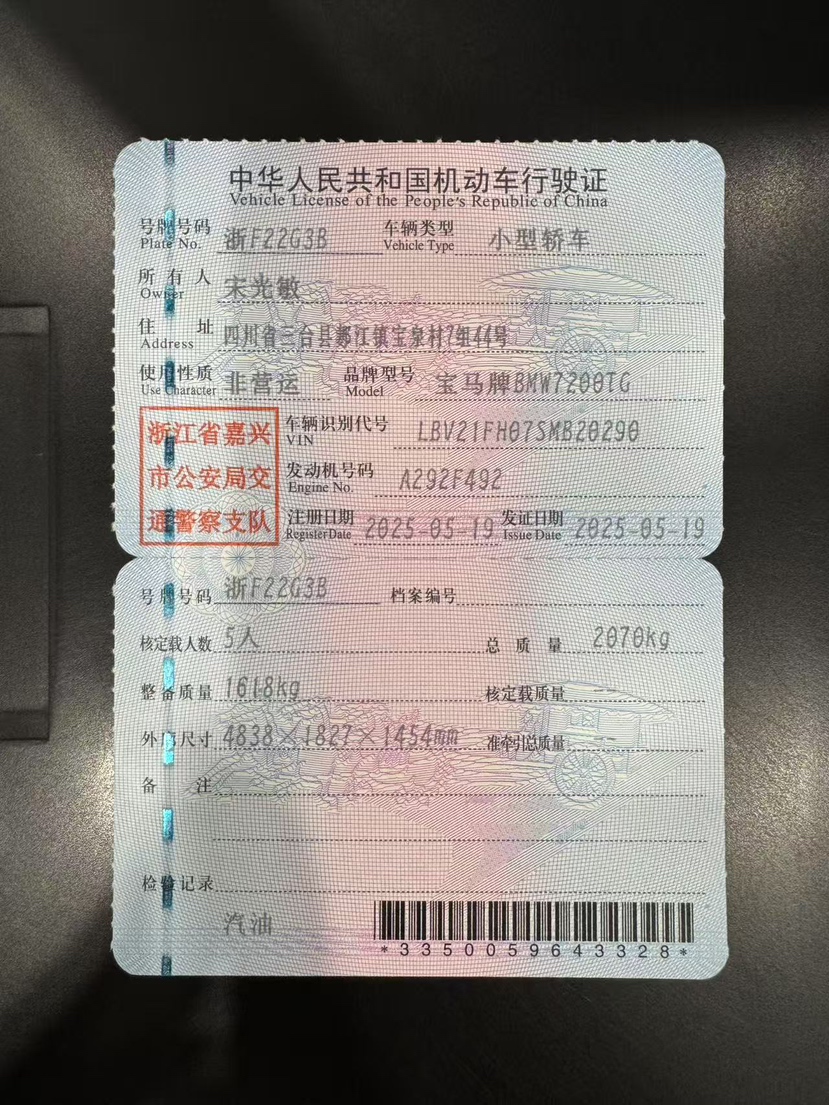 中华人民共和国机动车行驶证
Vehicle License of the People's Republic of China
号牌号码 浙F22G3B 车辆类型 小型轿车
Plate No. Vehicle Type
所有人 宋光敏
Owner
住址 四川省三台县郪江镇宝泉村7组44号
Address
使用性质 非营运 品牌型号 宝马牌BMW7200TG
Use Character Model
浙江省嘉兴
市公安局交
通警察支队
车辆识别代号 LBV21FH07SMB20290
VIN
发动机号码 A292F492
Engine No.
注册日期 2025-05-19 发证日期 2025-05-19
Register Date Issue Date
号牌号码 浙F22G3B 档案编号
核定载人数 5人 总质量 2070kg
整备质量 1618kg 核定载质量 --
外廓尺寸 4838×1827×1454mm 准牵引总质量 --
备注
检验记录
汽油
*3350059643328*